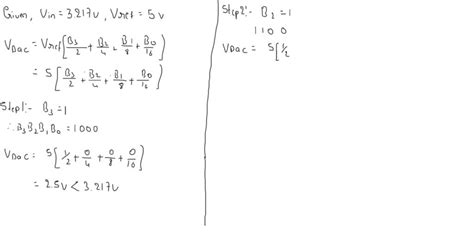 Given, Vin = 3.217v, Vref = 5v
VDac = Vref[B3/2 + B2/4 + B1/8 + B0/16]
= 5[B3/2 + B2/4 + B1/8 + B0/16]
Step1:- B3 = 1
∴ B3B2B1B0 = 1000
VDac = 5[1/2 + 0/4 + 0/8 + 0/16]
= 2.5v < 3.217v
Step2:- B2 = 1
1100
VDac = 5[1/2